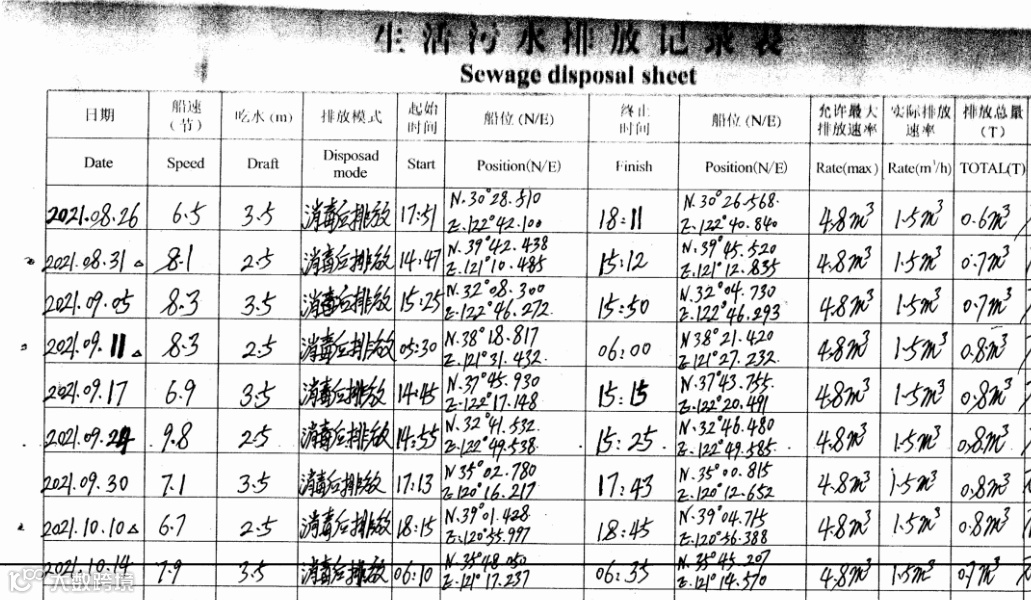 生活污水排放记录表
Sewage disposal sheet
日期 船速(节) 吃水(m) 排放模式 起始时间 船位(N/E) 终止时间 船位(N/E) 允许最大排放速率 实际排放速率 排放总量(T)
Date Speed Draft Disposad mode Start Position(N/E) Finish Position(N/E) Rate(max) Rate(m³/h) TOTAL(T)
2021.08.26 6.5 3.5 消毒后排放 17:51 N.30°28.510 E.122°42.100 18:11 N.30°26.568 E.122°40.840 4.8m³ 1.5m³ 0.6m³
2021.08.31 8.1 2.5 消毒后排放 14:47 N.39°42.438 E.121°10.485 15:12 N.39°45.520 E.121°12.835 4.8m³ 1.5m³ 0.7m³
2021.09.05 8.3 3.5 消毒后排放 15:25 N.32°08.300 E.122°46.272 15:50 N.32°04.730 E.122°46.293 4.8m³ 1.5m³ 0.7m³
2021.09.11 8.3 2.5 消毒后排放 05:30 N.38°18.817 E.121°31.432 06:00 N38°21.420 E.121°27.232 4.8m³ 1.5m³ 0.8m³
2021.09.17 6.9 3.5 消毒后排放 14:45 N.37°45.930 E.122°17.148 15:15 N.37°43.755 E.122°20.491 4.8m³ 1.5m³ 0.8m³
2021.09.24 9.8 2.5 消毒后排放 14:55 N.32°41.532 E.122°49.538 15:25 N.32°46.480 E.122°49.585 4.8m³ 1.5m³ 0.8m³
2021.09.30 7.1 3.5 消毒后排放 17:13 N.35°02.780 E.120°16.217 17:43 N.35°00.815 E.120°12.652 4.8m³ 1.5m³ 0.8m³
2021.10.10 6.7 2.5 消毒后排放 18:15 N.39°01.428 E.120°55.997 18:45 N.39°04.715 E.120°56.388 4.8m³ 1.5m³ 0.8m³
2021.10.14 7.9 3.5 消毒后排放 06:10 N.35°48.050 E.121°17.237 06:35 N.35°45.207 E.121°14.570 4.8m³ 1.5m³ 0.7m³
大数跨境